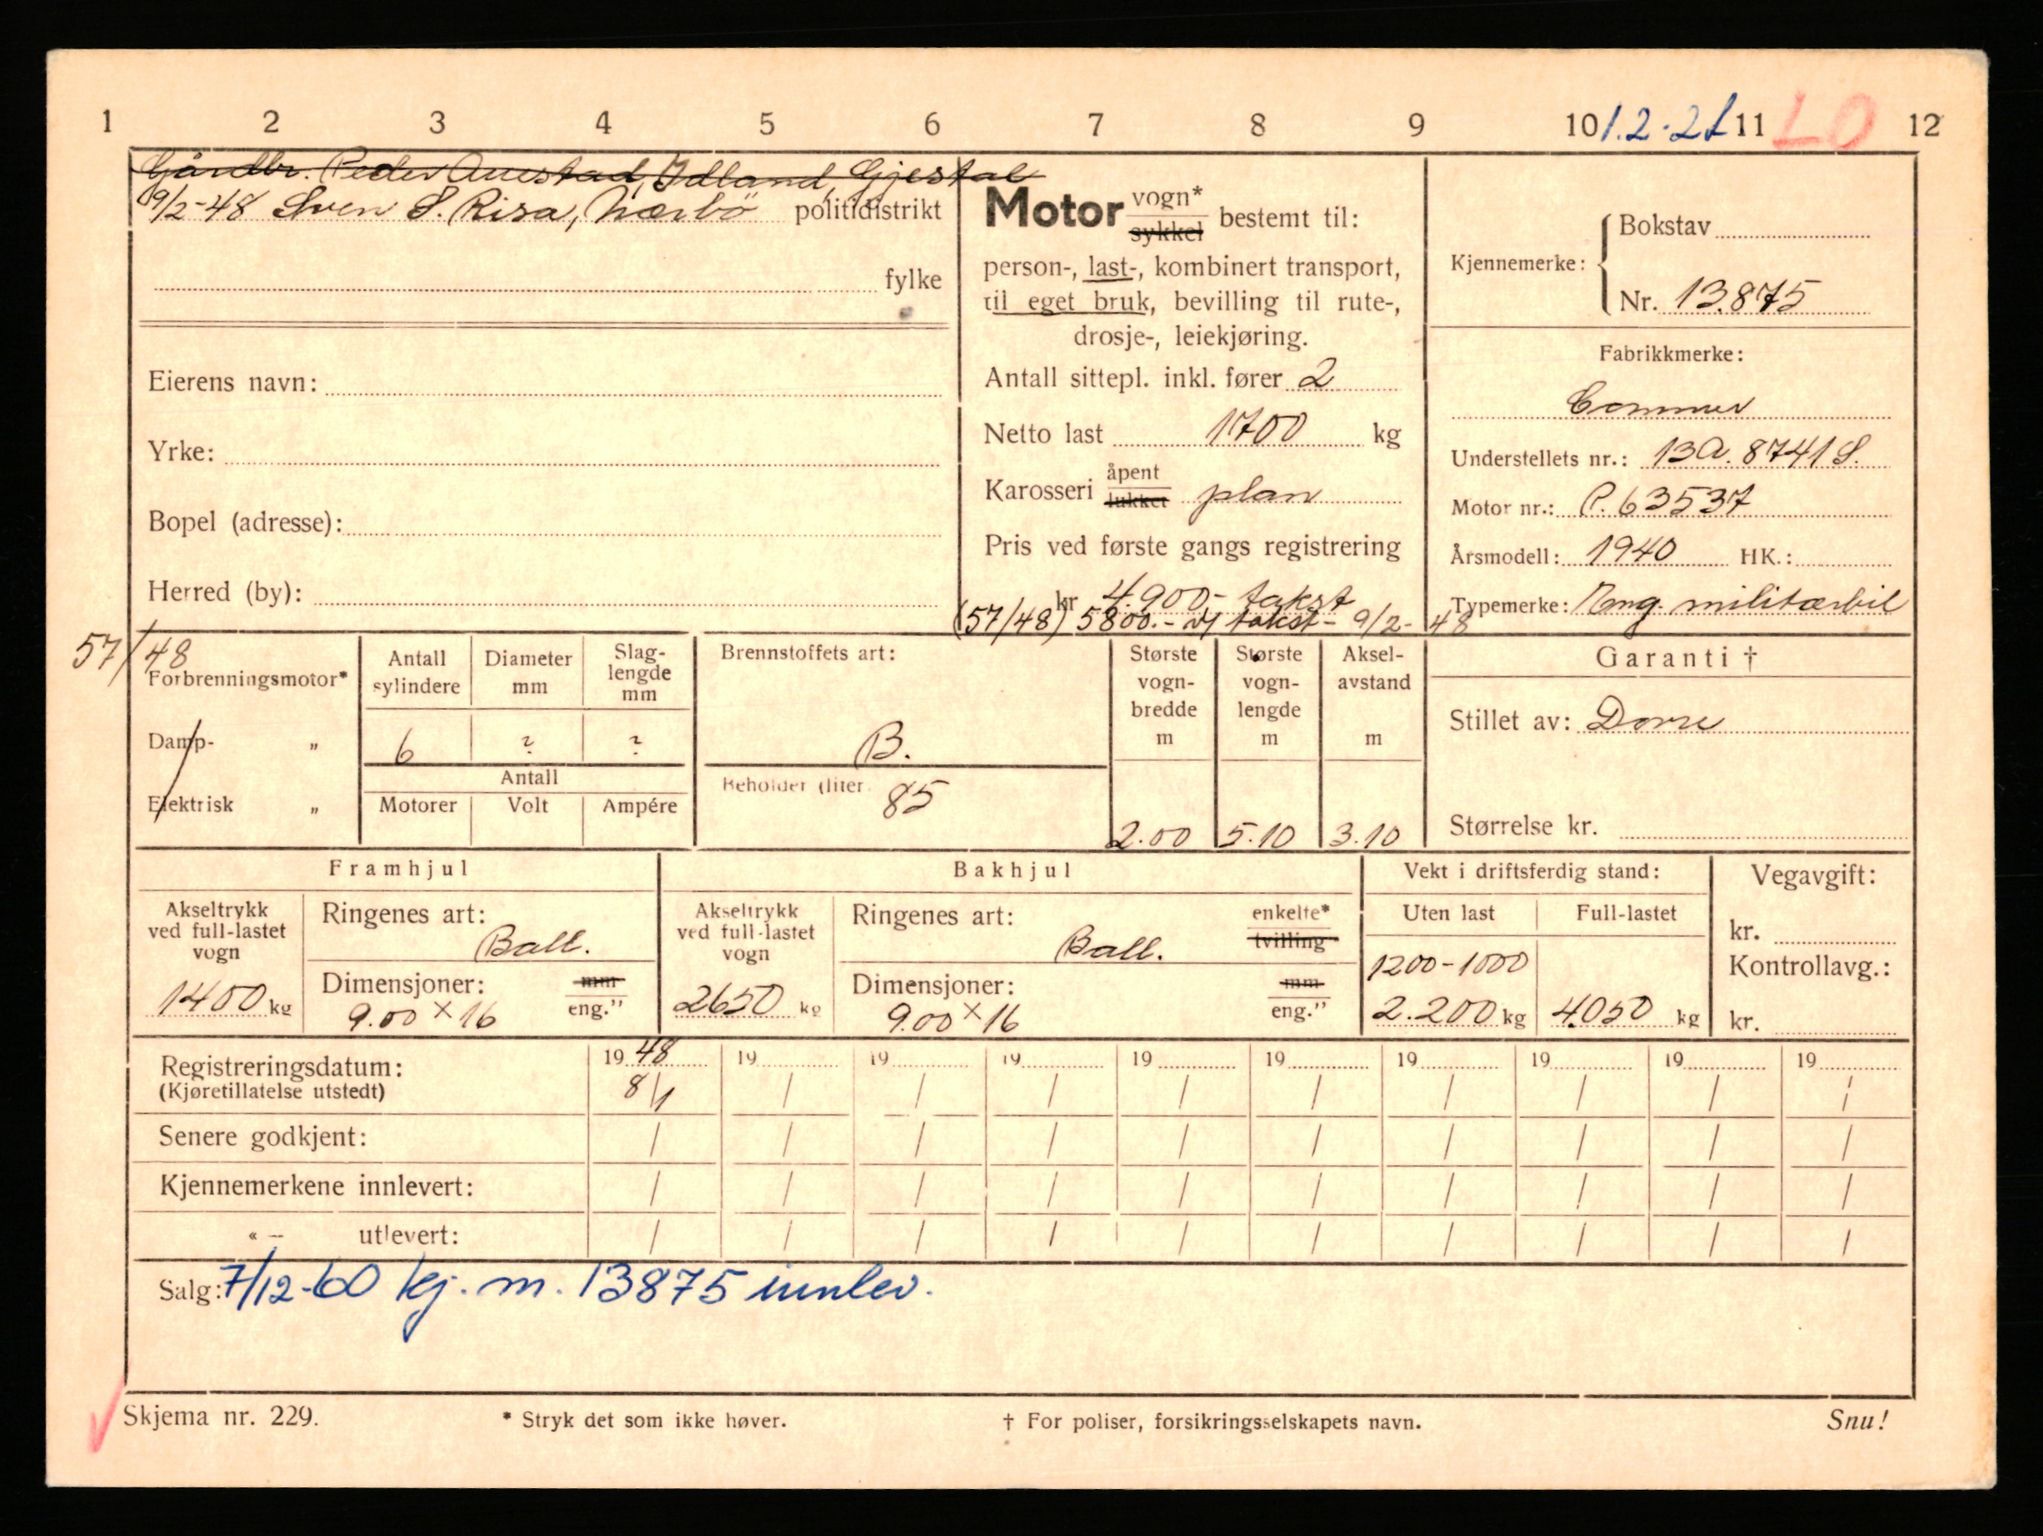 1 2 3 4 5 6 7 8 9 10 1.2-21 11 LO 12
Gårdbr. Peder Auestad, Idland, Gjestal
9/2-48 Sven S. Risa, Nærbø politidistrikt
fylke
Eierens navn:
Yrke:
Bopel (adresse):
Herred (by):
Motor vogn* sykkel bestemt til:
person-, last-, kombinert transport,
til eget bruk, bevilling til rute-,
drosje-, leiekjøring.
Antall sittepl. inkl. fører 2
Netto last 1700 kg
Karosseri åpent lukket plan
Pris ved første gangs registrering
kr 4.900,- takst
(57/48) 5800.- takst - 9/2-48
Kjennemerke: Bokstav
Nr. 13.875
Fabrikkmerke:
Commer
Understellets nr.: 13A. 8741 S.
Motor nr.: P. 63537
Årsmodell: 1940 HK.:
Typemerke: Eng. militærbil
57/48
Forbrenningsmotor*
Damp- „
Elektrisk „
Antall sylindere
Diameter mm
Slag-lengde mm
6 ? ?
Antall
Motorer Volt Ampére
Brennstoffets art:
B.
Beholder (liter 85
Største vogn-bredde m
2.00
Største vogn-lengde m
5.10
Aksel-avstand m
3.10
Garanti †
Stillet av: Dovre
Størrelse kr.
Framhjul
Akseltrykk
ved full-lastet
vogn
1400 kg
Ringenes art:
Ball.
Dimensjoner: mm
9.00 x 16 eng."
Bakhjul
Akseltrykk
ved full-lastet
vogn
2650 kg
Ringenes art: enkelte*
Ball. tvilling
Dimensjoner: mm
9.00 x 16 eng."
Vekt i driftsferdig stand:
Uten last Full-lastet
1200-1000
2.200 kg 4.050 kg
Vegavgift:
kr.
Kontrollavg.:
kr.
Registreringsdatum: 19 48 19 19 19 19 19 19 19 19 19
(Kjøretillatelse utstedt) 8/1 / / / / / / / / /
Senere godkjent: / / / / / / / / / /
Kjennemerkene innlevert: / / / / / / / / / /
« — utlevert: / / / / / / / / / /
Salg: 7/12-60 kj. m. 13875 innlev.
Skjema nr. 229. * Stryk det som ikke høver. † For poliser, forsikringsselskapets navn. Snu!